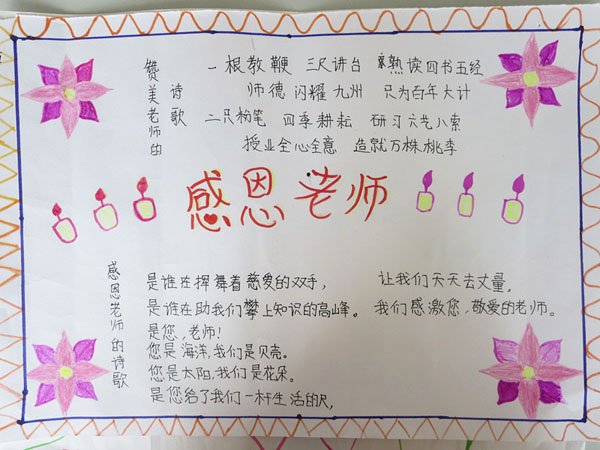 赞美老师的
诗歌
一根教鞭 三尺讲台 熟读四书五经
师德闪耀九州 只为百年大计
二尺粉笔 四季耕耘 研习六艺八索
授业全心全意 造就万株桃李
感恩老师
感恩老师的诗歌
是谁在挥舞着慈爱的双手,
是谁在助我们攀上知识的高峰。
是您,老师!
您是海洋,我们是贝壳。
您是太阳,我们是花朵。
是您给了我们一杆生活的尺,
让我们天天去丈量。
我们感激您,敬爱的老师。